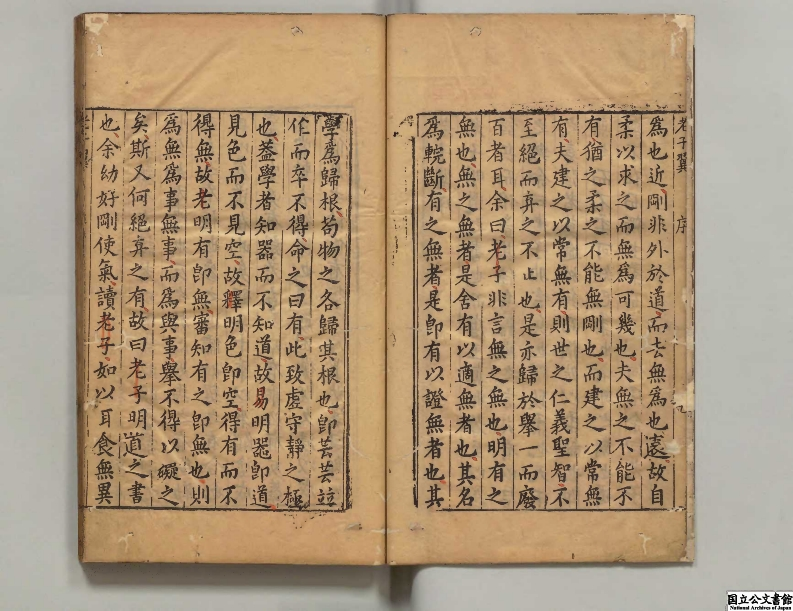 老子翼 序
爲也近剛非外於道而去無爲也遠故自
柔以求之而無爲可幾也夫無之不能不
有猶之柔之不能無剛也而建之以常無
有夫建之以常無有則世之仁義聖智不
至絕而弃之不止也是亦歸於舉一而廢
百者耳余曰老子非言無之無也明有之
無也無之無者是舍有以適無者也其名
爲輐斷有之無者是卽有以證無者也其
學爲歸根苟物之各歸其根也卽芸芸竝
作而卒不得命之曰有此致虛守靜之極
也葢學者知器而不知道故易明噐卽道
見色而不見空故釋明色卽空得有而不
得無故老明有卽無審知有之卽無也則
爲無爲事無事而爲與事舉不得以礙之
矣斯又何絕弃之有故曰老子明道之書
也余幼好剛使氣讀老子如以耳食無異
国立公文書館
National Archives of Japan